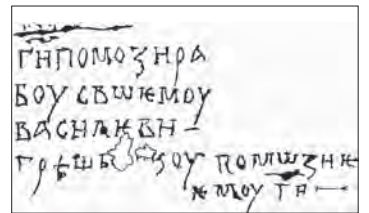 ГНПОМОЗНРА
БОУ СВѠѤМОУ
ВАСНЛѤВН –
ГРѢШЬ ЗОУ ПОМѠЗНѤ
ѤМОУ ГН